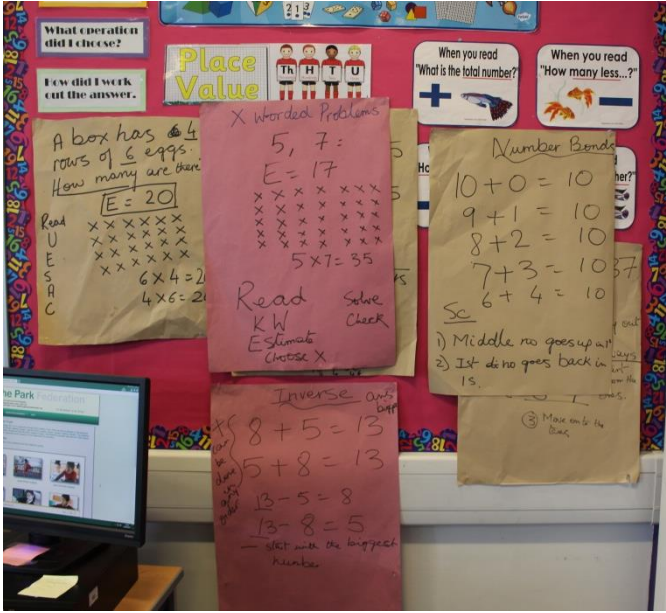 What operation
did I choose?
How did I work
out the answer.
Place
Value
Th H T U
When you read
"What is the total number?"
When you read
"How many less...?"
A box has 4
rows of 6 eggs.
How many are there
E = 20
Read
U
E
S
A
C
6 x 4 = 2
4 x 6 = 2
X Worded Problems
5, 7 =
E = 17
5 x 7 = 35
Read
KW
Estimate
Choose X
Solve
Check
Number Bonds
10 + 0 = 10
9 + 1 = 10
8 + 2 = 10
7 + 3 = 10
6 + 4 = 10
Sc
1) Middle no goes up in 1s
2) 1st no goes back in
1s.
37
out
3 Move onto the
Inverse
8 + 5 = 13
5 + 8 = 13
13 - 5 = 8
13 - 8 = 5
— start with the biggest
number
+
can
be
done
in
any
order
The Park Federation